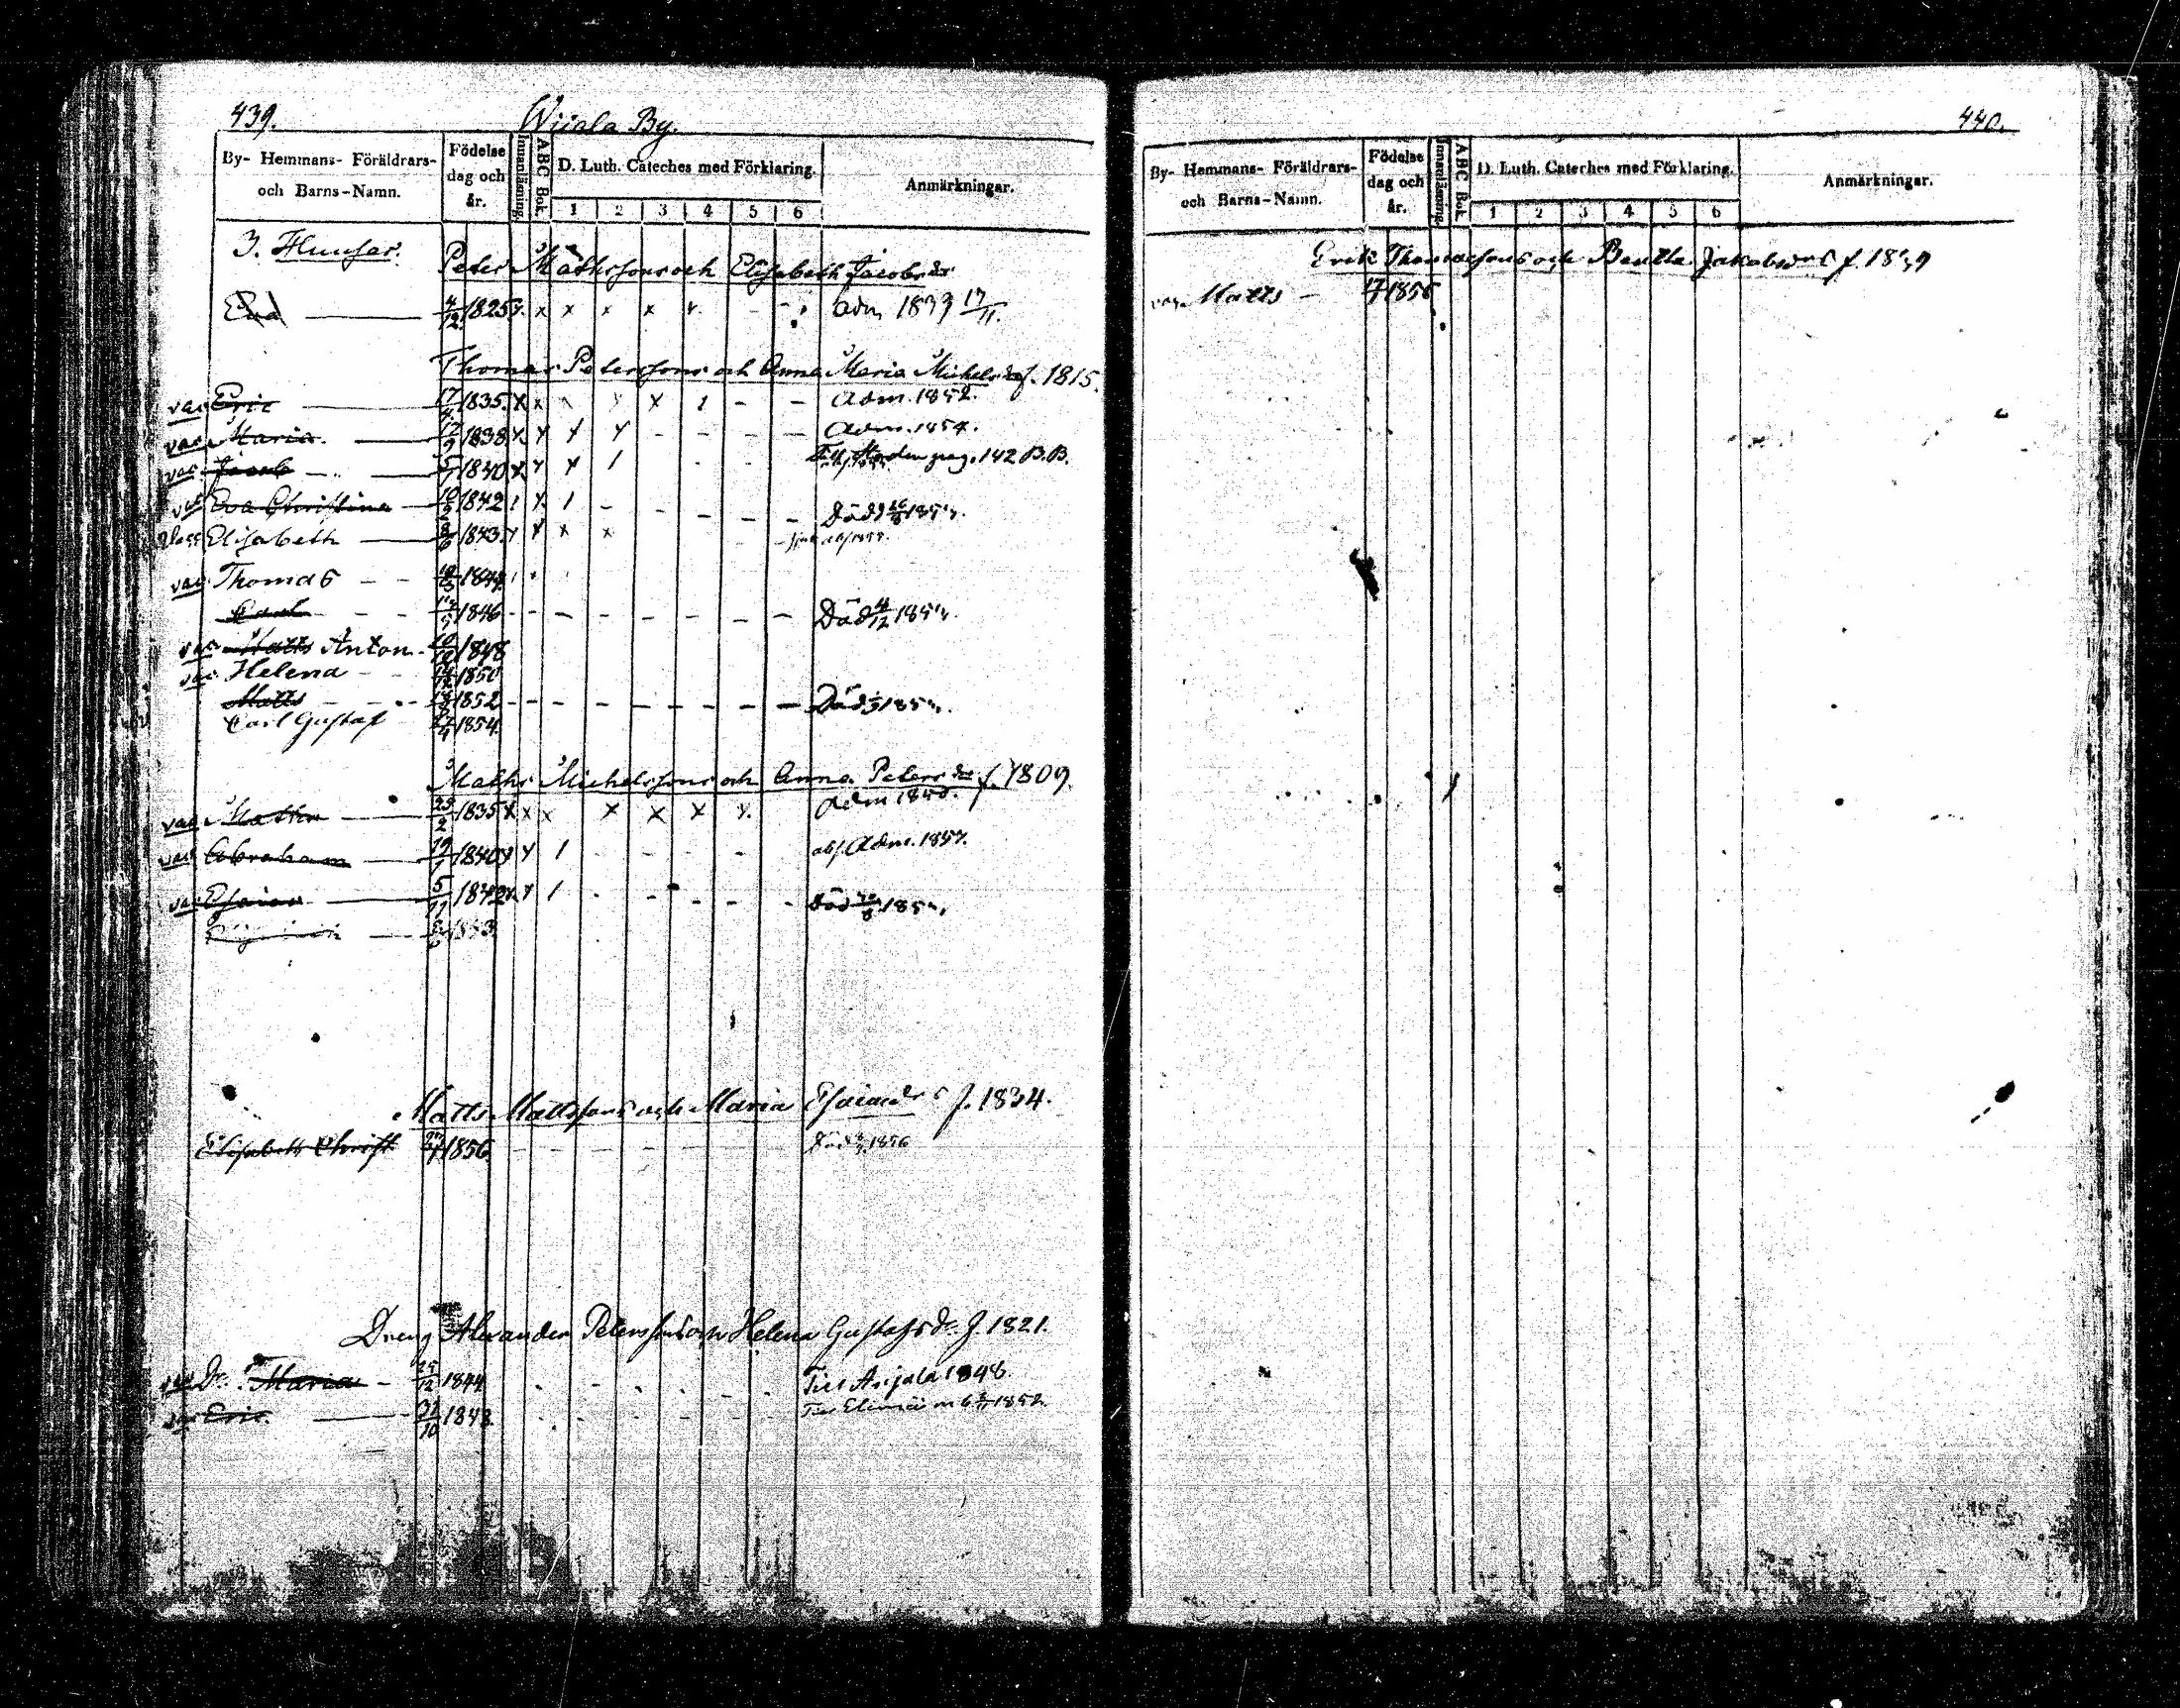 439.
Wiiala By.
By- Hemmans- Föräldrars- och Barns-Namn.
Födelse dag och år.
Innanläsning.
ABC Bok.
D. Luth. Cateches med Förklaring.
1 2 3 4 5 6
Anmärkningar.
3. Huusar.
Peter Mathssons och Elisabeth Jacobsdr
Eva 4/12 1825 x x x x x - - adm 1839 17/11.
Thomas Peterssons och Anna Maria Michelsdr f. 1815.
vac Eric 17/4 1835 x x x x 1 - - Adm. 1852.
vac Maria 12/9 1838 x x x x - - - - Adm. 1854.
vac Jacob 5/7 1840 x x x 1 - - Till Norden pag. 142 B.B.
vac Eva Christina 1842 1 x 1 - - - - - Död
Elisabeth 1843 x x x x
vac Thomas 1844
Carl 1846 - - - - - - - - Död 4/12
vac Matts Anton 1848
vac Helena 1850
Matts 1852 - - - - - - - - Död
Carl Gustaf 1854
Maths Michelssons och Anna Petersdr f. 1809.
vac Maths 25/2 1835 x x x x x x x Adm 1850.
vac Abraham 19/1 1840 x x 1 - - - - Adm. 1857.
vac Esaias 5/11 1842 x x 1 - - - - - Död
Matts Mattssons och Maria Esaiasdr f. 1834.
Elisabeth Christ 1856 - - - - - - - - Död 1856
Dreng Alexander Peterssons och Helena Gustafsdr f. 1821.
vac Dr. Maria - 25/12 1844 - - - - - - Till Anjala 1848.
vac Eric 31/10 1848 - - - - - - Till Elimä 1852.
440.
By- Hemmans- Föräldrars- och Barns-Namn.
Födelse dag och år.
Innanläsning.
ABC Bok.
D. Luth. Cateches med Förklaring.
1 2 3 4 5 6
Anmärkningar.
Erik Thomassons och Jakobsdr f.
vac. Matts - 1856